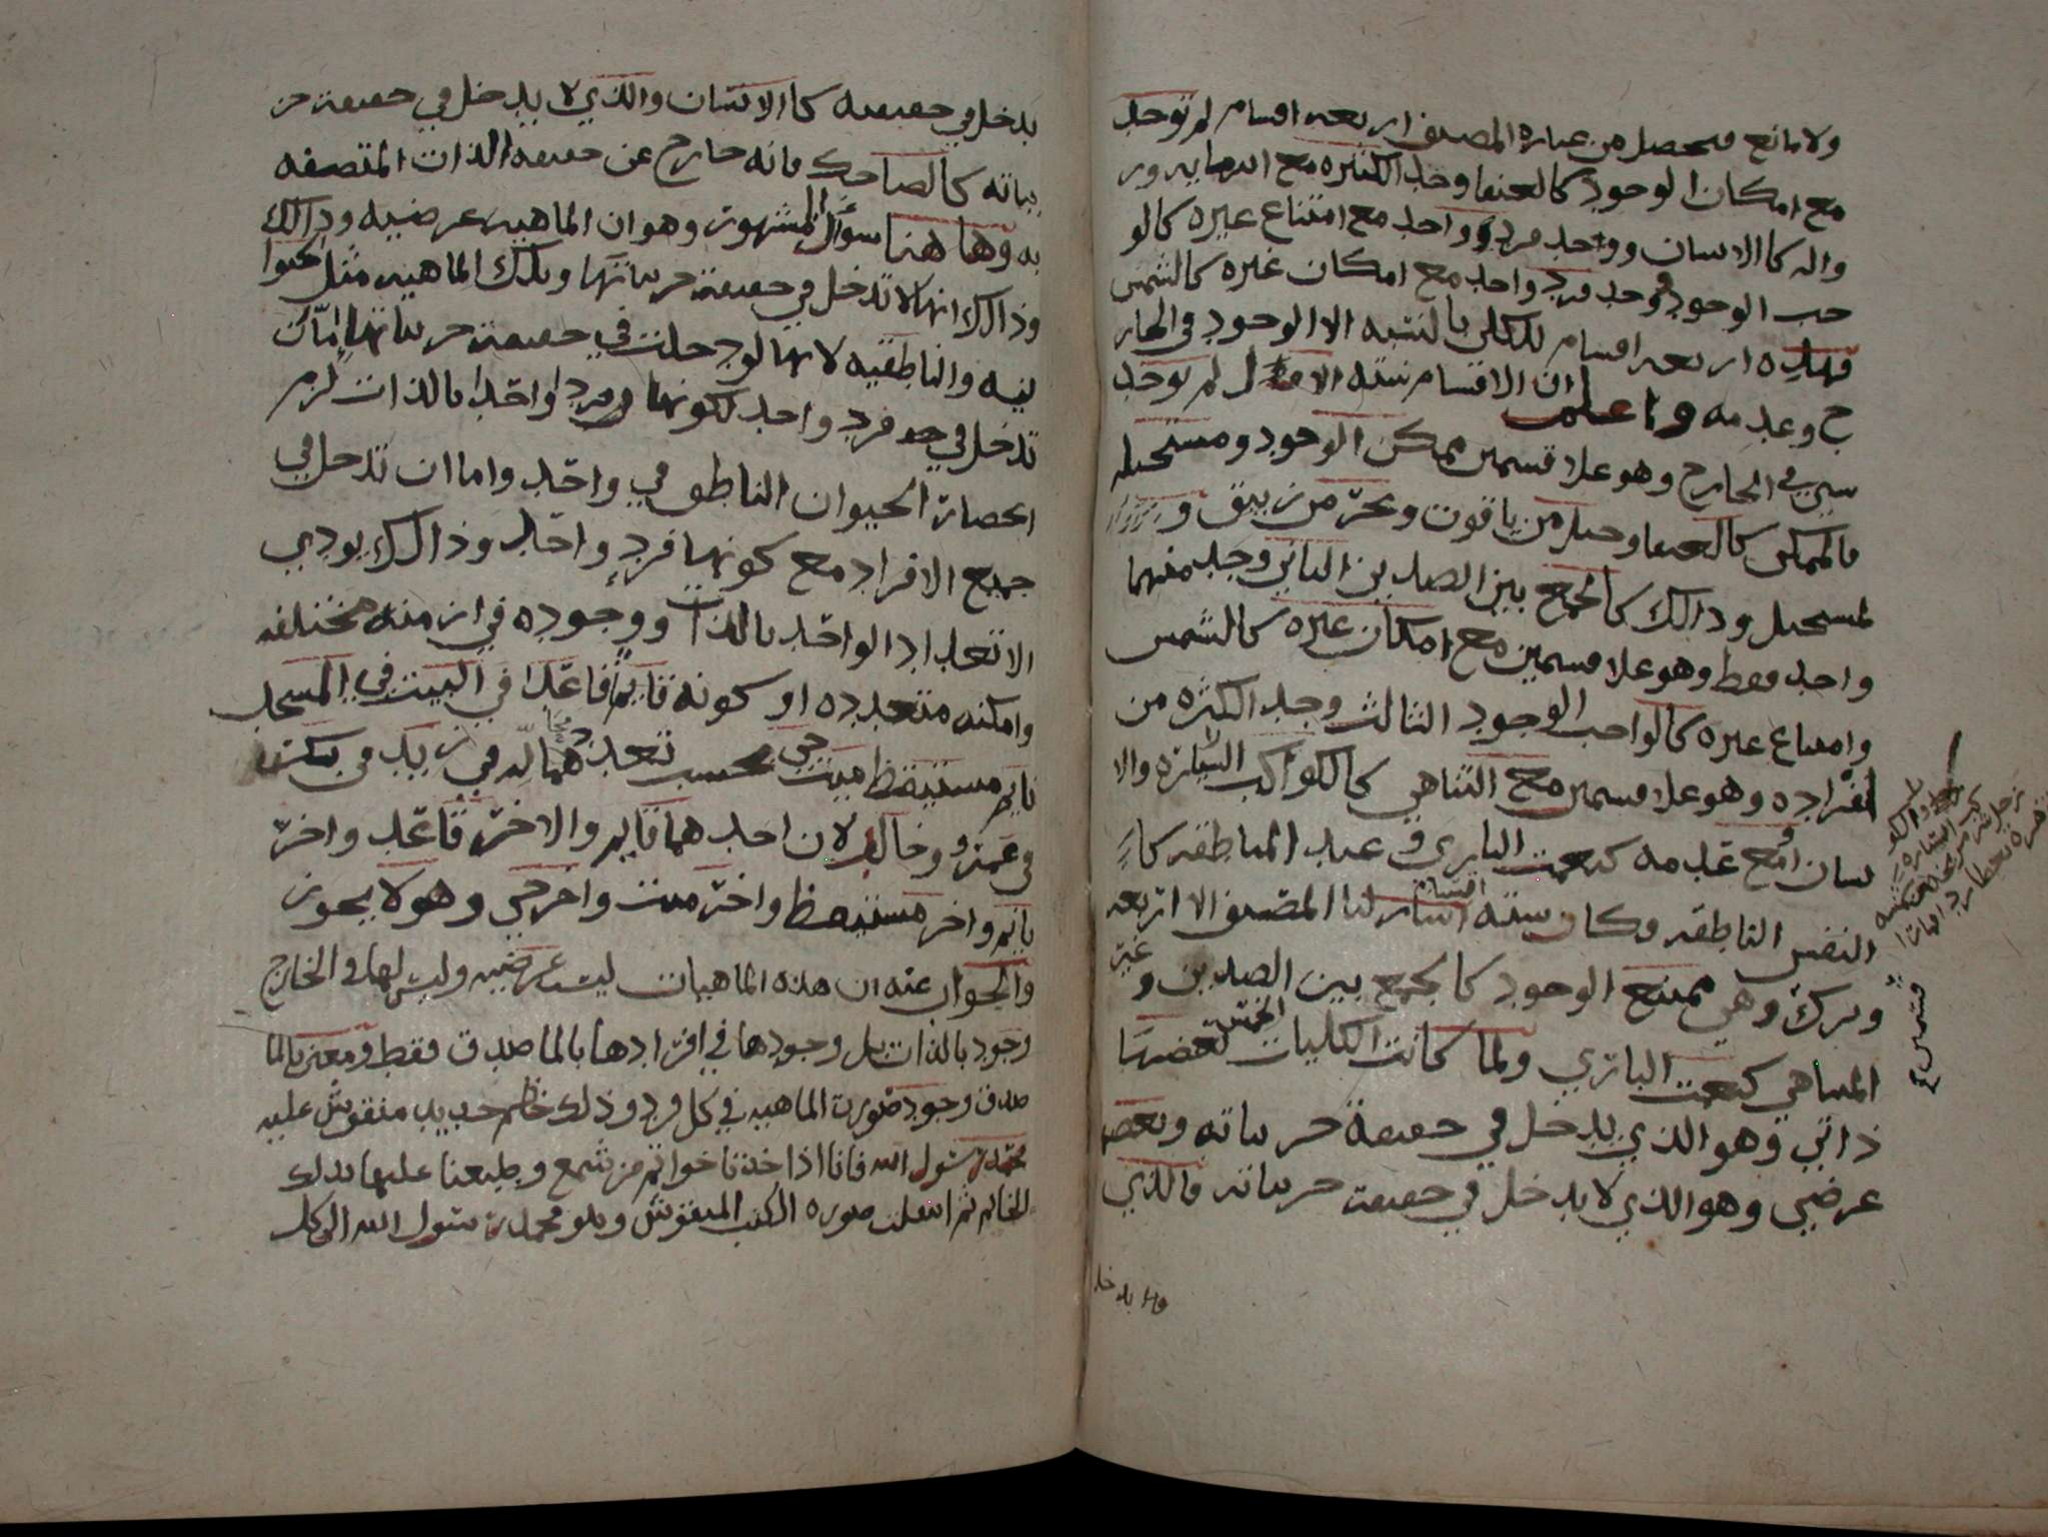 ولا مانع فتحصل من عبارة المصنف اربعه اقسام لم توجد
مع امكان الوجود كالعنقا وجد الكثيره مع
واله كا الانسان ووجد فرد واحد مع امتناع غيره كالوا
جب الوجود ووجد فرد واحد مع امكان غيره كالشمس
فهذه اربعه اقسام للكلي بالنسبه الا الوجود في الخار
ج وعدمه واعلم ان الاقسام سته الاول لم توجد
شي في الخارج وهو علا قسمين ممكن الوجود ومستحيله
فالممكن كالعنقا وجبل من ياقوت وبحر من زيبق و
لمستحيل وذالك كالجمع بين الضدين الثاني وجد منهما
واحد فقط وهو علا قسمين مع امكان غيره كالشمس
وامتناع غيره كالواجب الوجود الثالث وجد الكثره من
افراده وهو علا قسمين مع التناهي كالكواكب السياره والا
نسان او مع عدمه كنعمت الباري و عند المناطقه كا
النفس الناطقه وكان سته اقسام لنا المصنف الا اربعه
وترك وهي ممتنع الوجود كالجمع بين الضدين و غير
المتناهي كنعمت الباري ولما كانت الكليات الخمس بعضها
ذاتي وهو الذي يدخل في حقيقة جزياته وبعض
عرضي وهو الذي لا يدخل في حقيقت جزياته فالذي
قسمين
يدخل في حقيقته كا الانسان والذي لا يدخل في حقيقة جز
يياته كالضاحك فانه خارج عن حقيقه الذات المتصفه
به وها هنا سوال المشهوره وهو ان الماهيه عرضيه وذالك
وذالك انها لا تدخل في حقيقة جزياتها وتلك الماهيه مثل الحيوا
نيه والناطقيه لانها لو دخلت في حقيقة جزياتها امّا ان
تدخل في حد فرد واحد لكونها فردا واحدا بالذات لزم
انحصار الحيوان الناطق في واحد واما ان تدخل في
جميع الافراد مع كونها فرد واحد وذالك يودي
الا تعداد الواحد بالذات ووجوده في ازمنه مختلفه
وامكنه متعدده او كونه قايم قاعدا في البيت في المسجد
نايم مستيقظ ميت حي بحسب في زيد في بكر
في عمرو وخالد لان احدهما قايم والاخر قاعد واخر
نايم واخر مستيقظ واخر ميت واخر حي وهو لا يجوز
والجواب عنه ان هذه الماهيات ليست عرضيه وليس لها في الخارج
وجود بالذات بل وجودها في افرادها بالماصدق فقط ومعنى بالما
صدق وجود صورت الماهيه في كل فرد وذلك خاتم حديد منقوش عليه
محمد رسول الله فانا اذا اخذنا خواتم من شمع وطبعنا عليها بذلك
الخاتم ثم انتقلت صوره الكتب المنقوش وهو محمد رسول الله الى كل